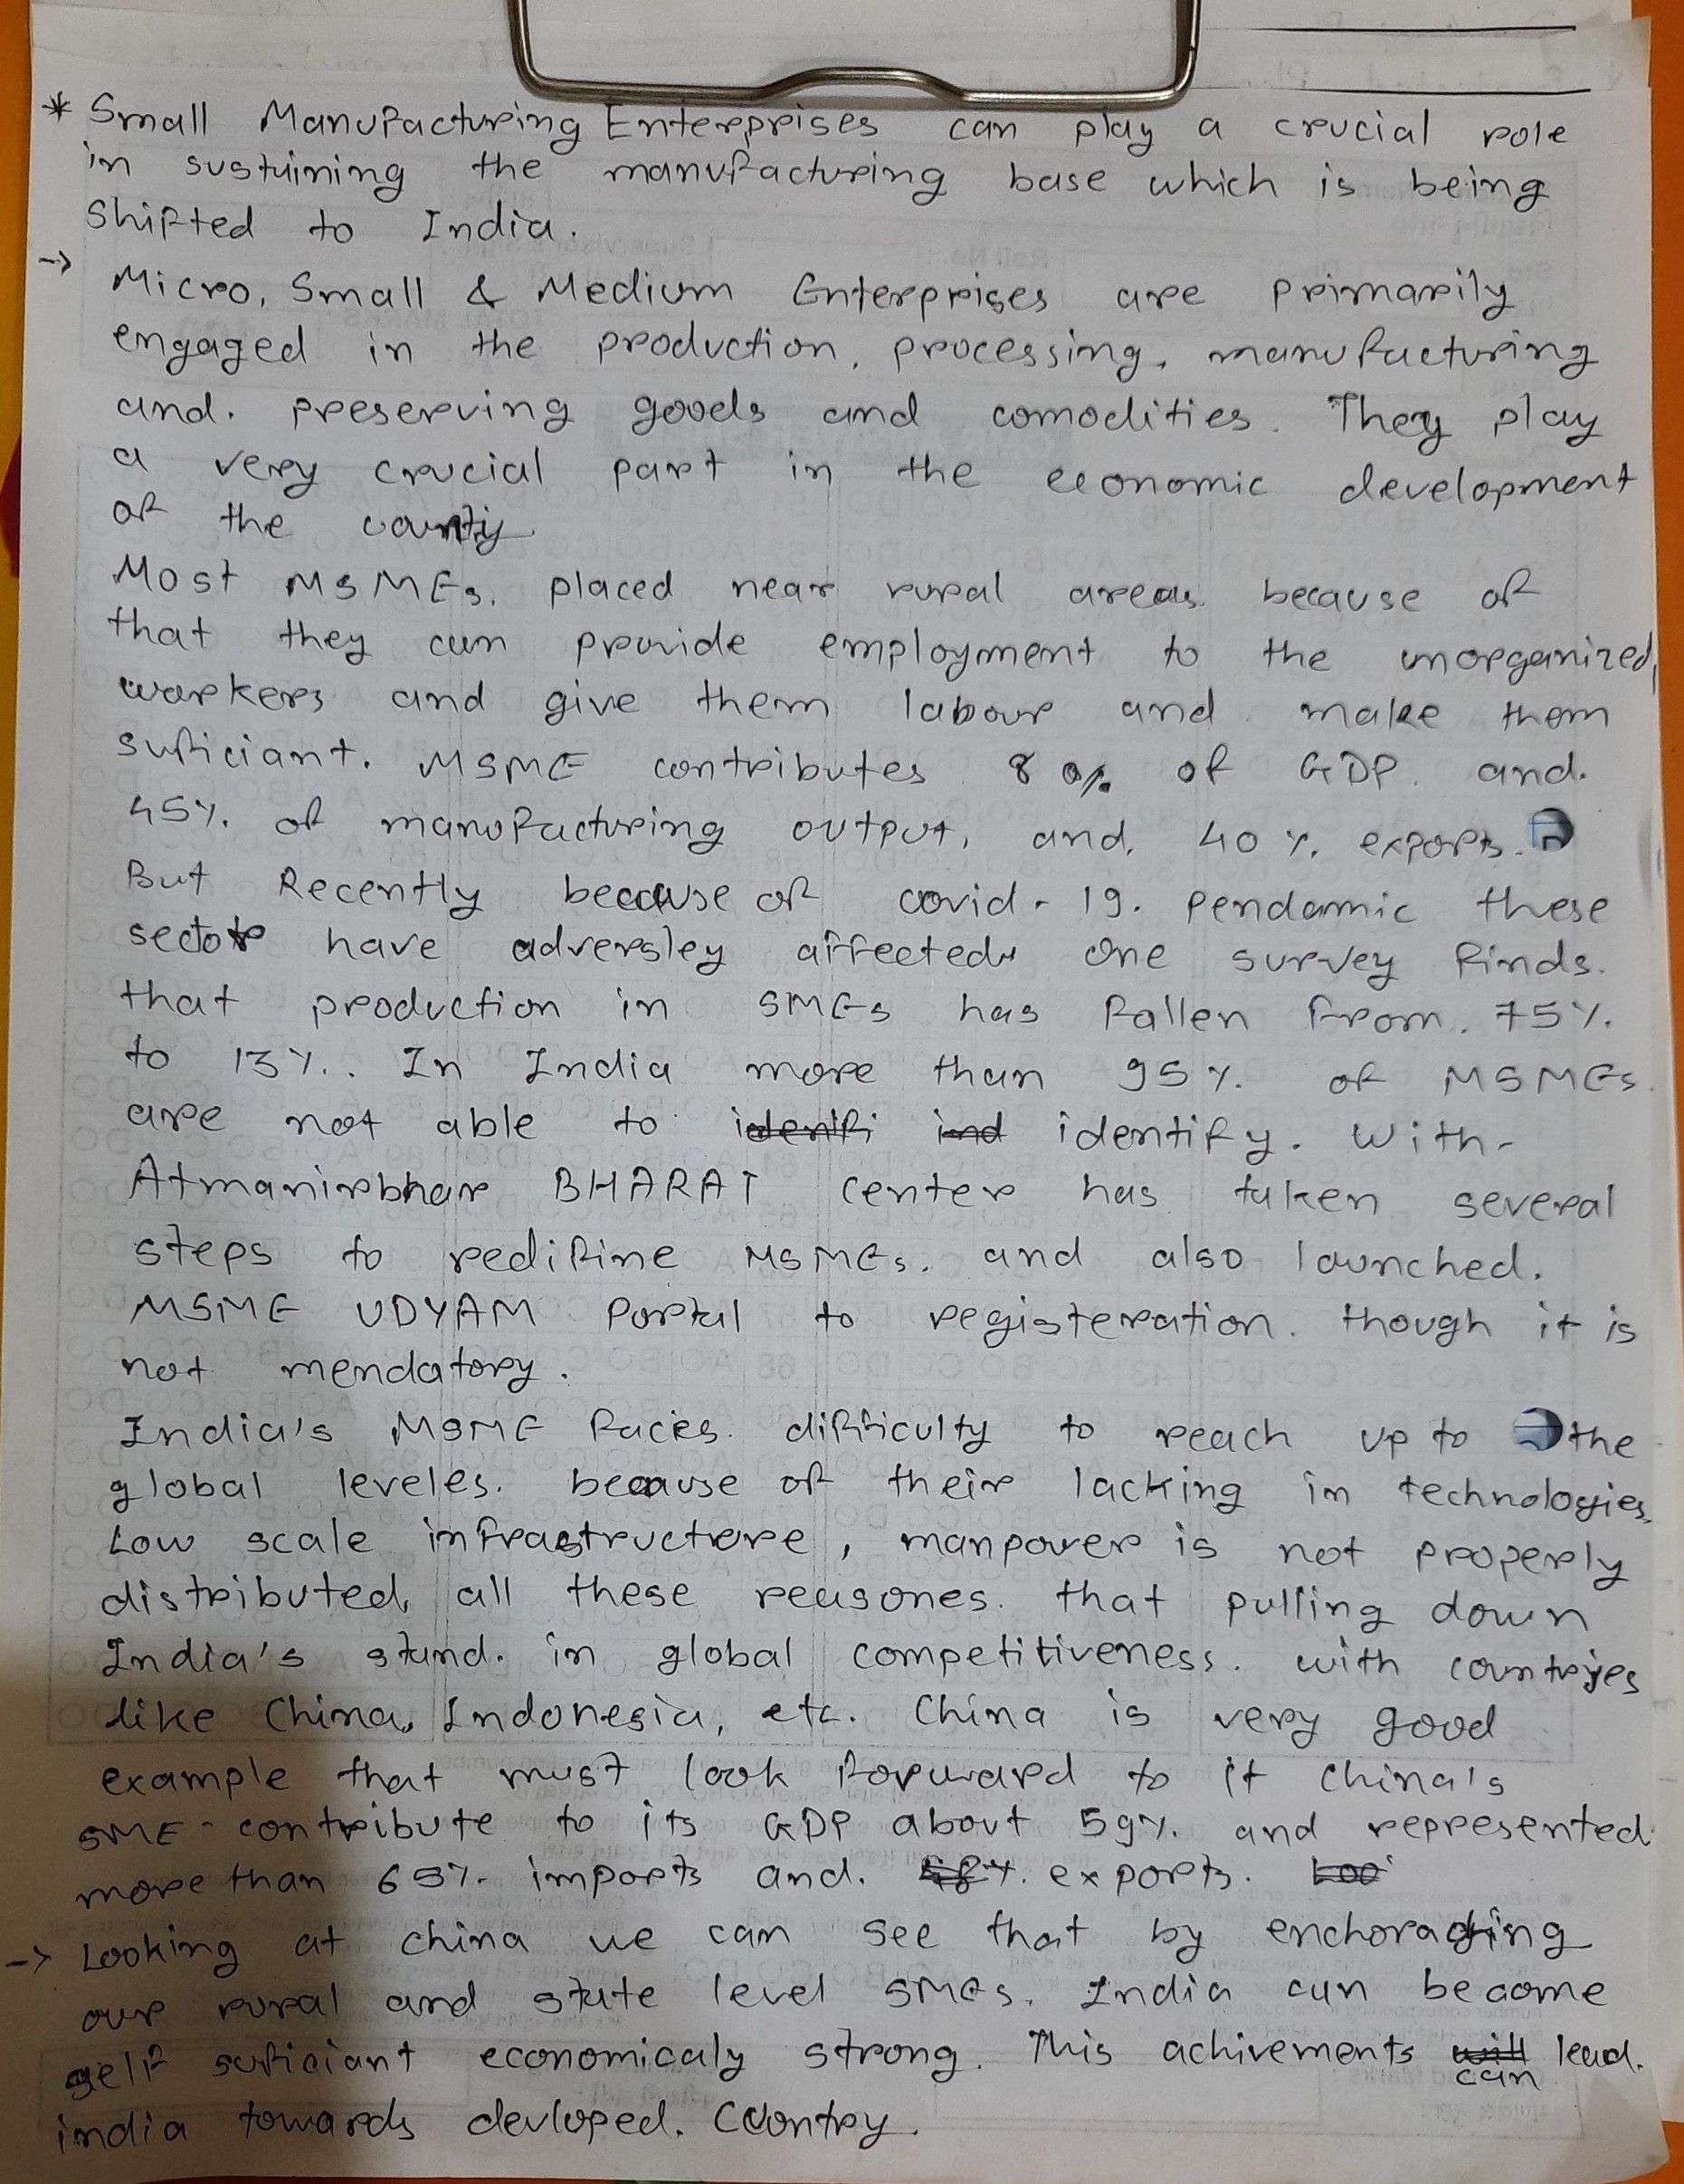 * Small Manufacturing Enterprises can play a crucial role
in sustuining the manufacturing base which is being
Shifted to India.
→
Micro, Small & Medium Enterprises are primarily
engaged in the production, processing, manufacturing
and. preserving goods and comodities. They play
a very crucial part in the economic development
of the county.
Most MSMEs. placed near rural areas because of
that they can provide employment to the unorganized,
workers and give them labour and make them
suficiant. MSME contributes 8 0% of GDP. and.
45%. of manufacturing output, and. 40 %. exports.
But Recently because of covid - 19. pendamic these
sector have adversley affected. One survey finds.
that production in SMEs has fallen from. 75%.
to 13%.. In India more than 95%. of MSMEs.
are not able to identify. With-
Atmanirbhar BHARAT center has taken several
steps to redifine MSMEs. and also launched.
MSME UDYAM Portal to registeration. though it is
not mendatory.
India's MSME faces. difficulty to reach up to the
global leveles. because of their lacking in technologies,
Low scale infrastructure, manpower is not properly
distributed, all these reasones. that pulling down
India's stand. in global competitiveness. with countries
like China, Indonesia, etc. China is very good
example that must look forward to it China's
SME - contribute to its GDP about 59%. and represented
more than 65%. imports and. exports.
→ Looking at china we can see that by enchoraging
our rural and state level SMEs. India can become
self suficiant economicaly strong. This achivements can lead.
india towards devloped. Country.